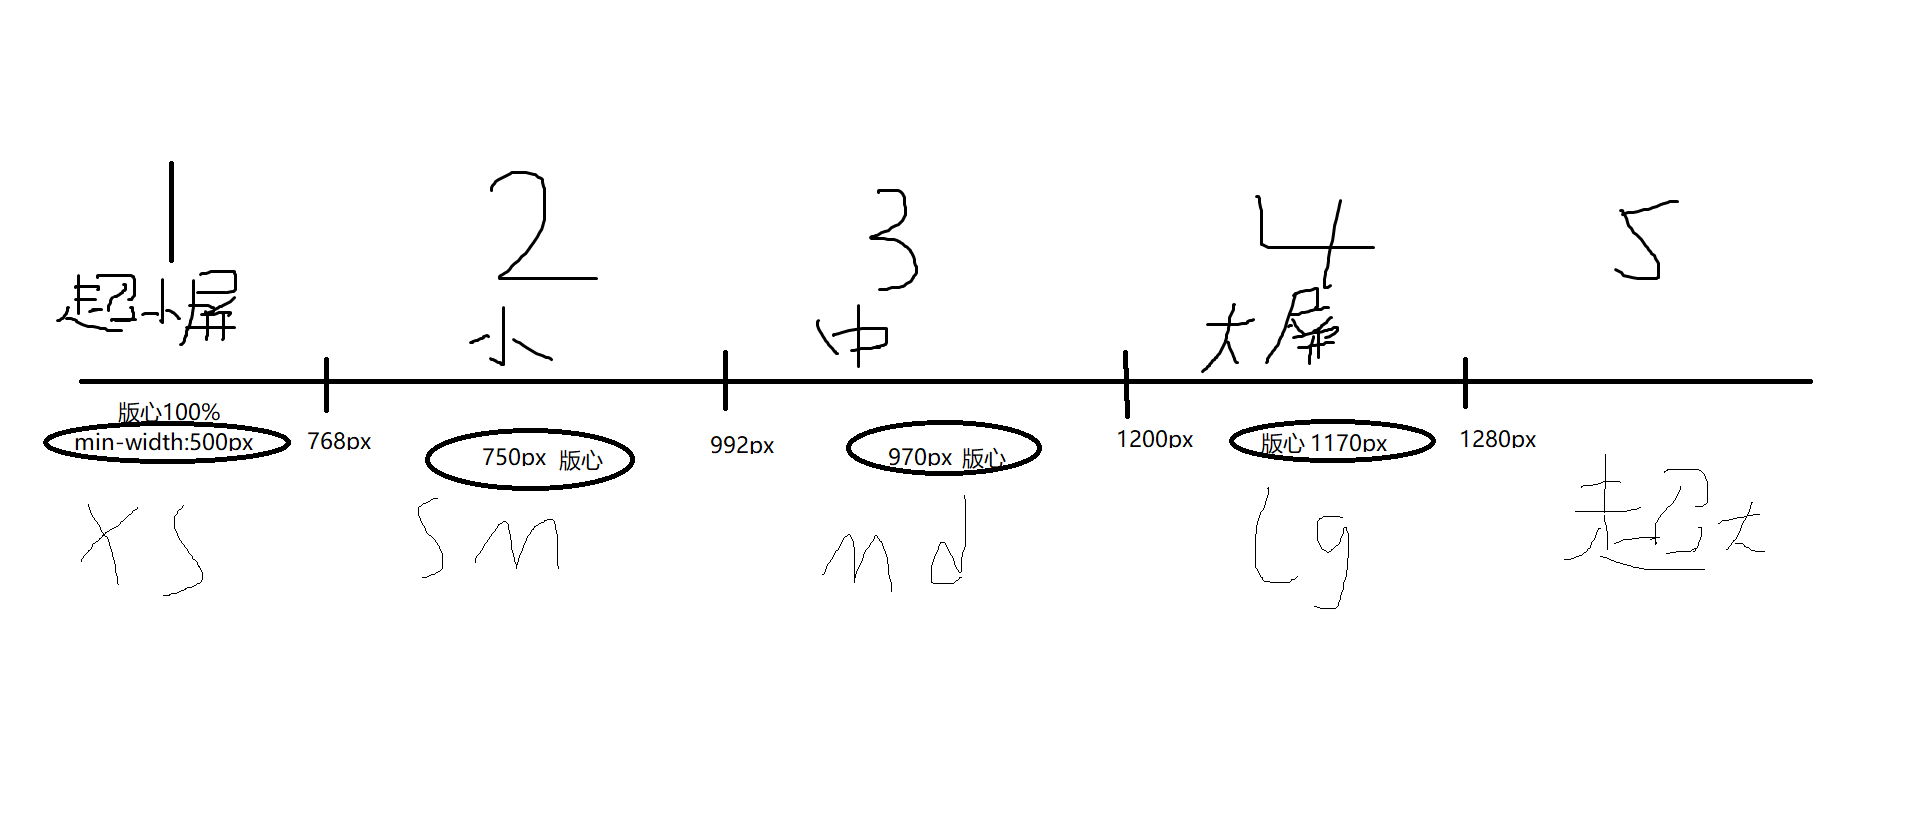 1 2 3 4 5
超小屏 小 中 大屏
版心100%
min-width:500px 768px 750px 版心 992px 970px 版心 1200px 版心 1170px 1280px
xs sm md lg 超大